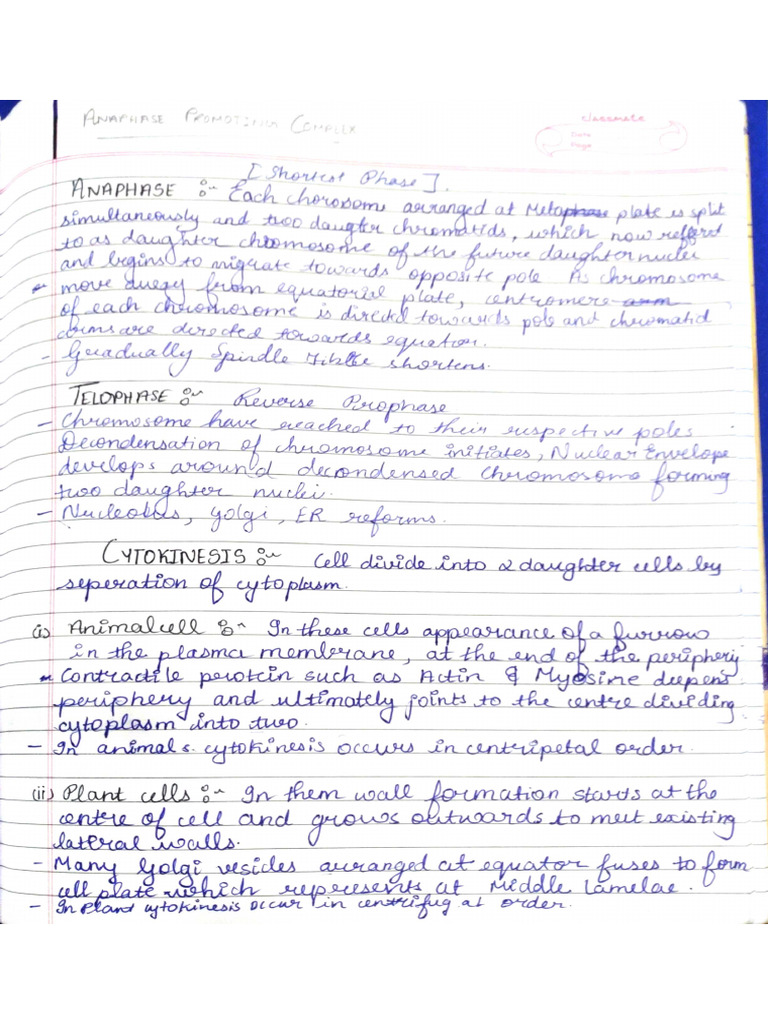 ANAPHASE PROMOTING COMPLEX
classmate
Date
Page
[Shortest Phase].
ANAPHASE :- Each chorosome arranged at Metaphase plate is split
simultaneously and two daugter chromatids, which now reffered
to as daughter chromosome of the future daughter nuclei
and begins to migrate towards opposite pole As chromosome
- move away from equatorial plate, centromere
of each chromosome is directed towards pole and chromatid
arms are directed towards equator.
- Gradually Spindle fibre shortens.
TELOPHASE :- Reverse Prophase
- Chromosome have reached to their respective poles
Decondensation of chromosome initiates, Nuclear Envelope
develops around decondensed chromosome forming
two daughter nuclei.
- Nucleolus, golgi, ER reforms.
CYTOKINESIS :- Cell divide into 2 daughter cells by
seperation of cytoplasm.
(i) Animal cell :- In these cells appearance of a furrow
in the plasma membrane, at the end of the periphery
- Contractile protein such as Actin & Myosine deepens
periphery and ultimately joints to the centre dividing
cytoplasm into two.
- In animals cytokinesis occurs in centripetal order.
(ii) Plant cells :- In them wall formation starts at the
centre of cell and grows outwards to meet existing
lateral walls.
- Many Golgi vesicles arranged at equator fuses to form
cell plate which represents at Middle Lamelae.
- In Plant cytokinesis occur in centrifugal order.